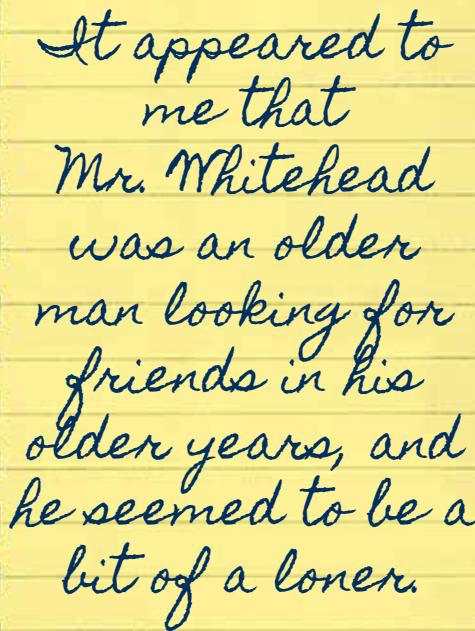 It appeared to
me that
Mr. Whitehead
was an older
man looking for
friends in his
older years, and
he seemed to be a
bit of a loner.